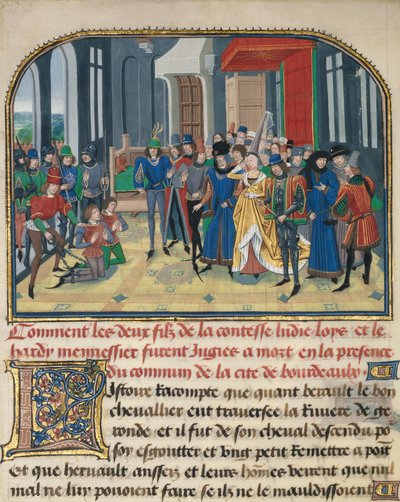 Comment les deux filz de la contesse ludie loys et le
hardy mennessier furent Jugies a mort en la presence
du commun de la cite de bourdeaulx
Listoire racompte que quant berault le bon
chevallier eut traversee la Riviere de ge
ronde et il fut de son cheval descendu po
soy esgoutter et ung petit Remettre a poit
et que hernault ansseis et leurs hommes veirent que nul
mal ne luy povoient faire se ilz ne le mauldissoient